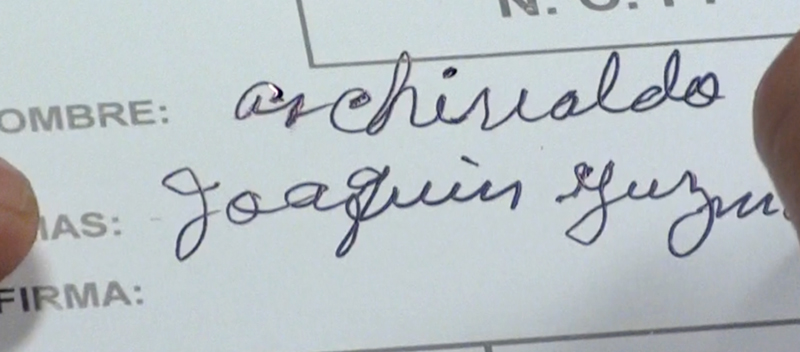 OMBRE: archivaldo
IAS: Joaquin Guzm
FIRMA: